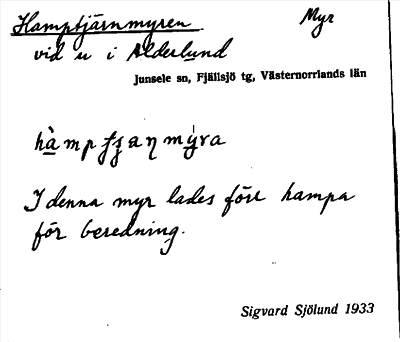 Hamptjärnmyren. Myr
vid u i Alderlund
Junsele sn, Fjällsjö tg, Västernorrlands län
I denna myr lades förr hampa
för beredning.
Sigvard Sjölund 1933